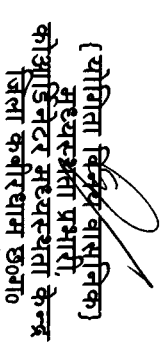 {योगिता विनय वासनिक}
मध्यस्थता प्रभारी
कोआर्डिनेटर मध्यस्थता केन्द्र
जिला कबीरधाम छ०ग०